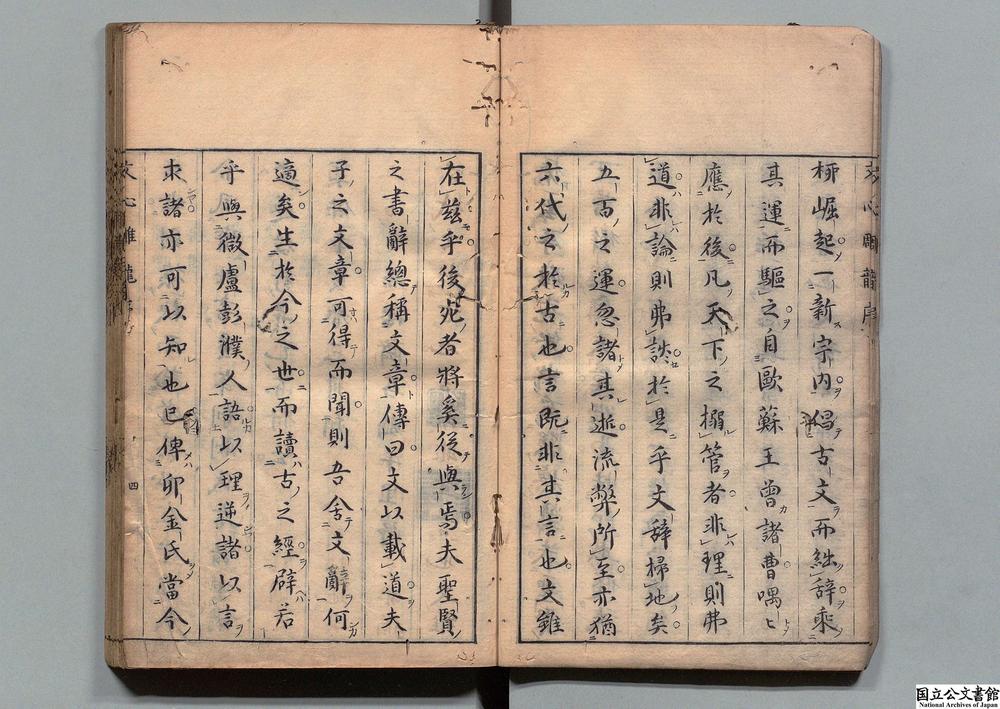 文心雕龍序
柳崛起一新宇内倡古文而絀辭乘
其運而驅之自歐蘇王曾諸曹喁〻
應於後凡天下之搦管者非理則弗
道非論則弗談於是乎文辭掃地矣
五百之運忽諸其逝流弊所至亦猶
六代之於古也言既非其言也文雖
在茲乎後死者將奚從與焉夫聖賢
之書辭總稱文章傳曰文以載道夫
子之文章可得而聞則吾舍文辭何
適矣生於今之世而讀古之經辟若
乎與微盧彭濮人語以理逆諸以言
求諸亦可以知也已俾卯金氏當今
文心雕龍序
四
国立公文書館
National Archives of Japan